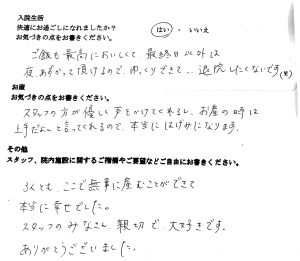 入院生活
快適にお過ごしになれましたか？　はい ・ いいえ
お気づきの点をお書きください。
ご飯も最高においしくて、最終日以外は
夜、あずかって頂けるので、ゆっくりできて、、退院したくないです(笑)
お産
お気づきの点をお書きください。
スタッフの方が優しく声をかけてくれるし、お産の時は
上手だよ〜と言ってくれるので、本当にはげみになります。
その他
スタッフ、院内施設に関するご指摘やご要望などご自由にお書きください。
3人とも、ここで無事に産むことができて
本当に幸せでした。
スタッフのみなさん、親切で、大好きです。
ありがとうございました。